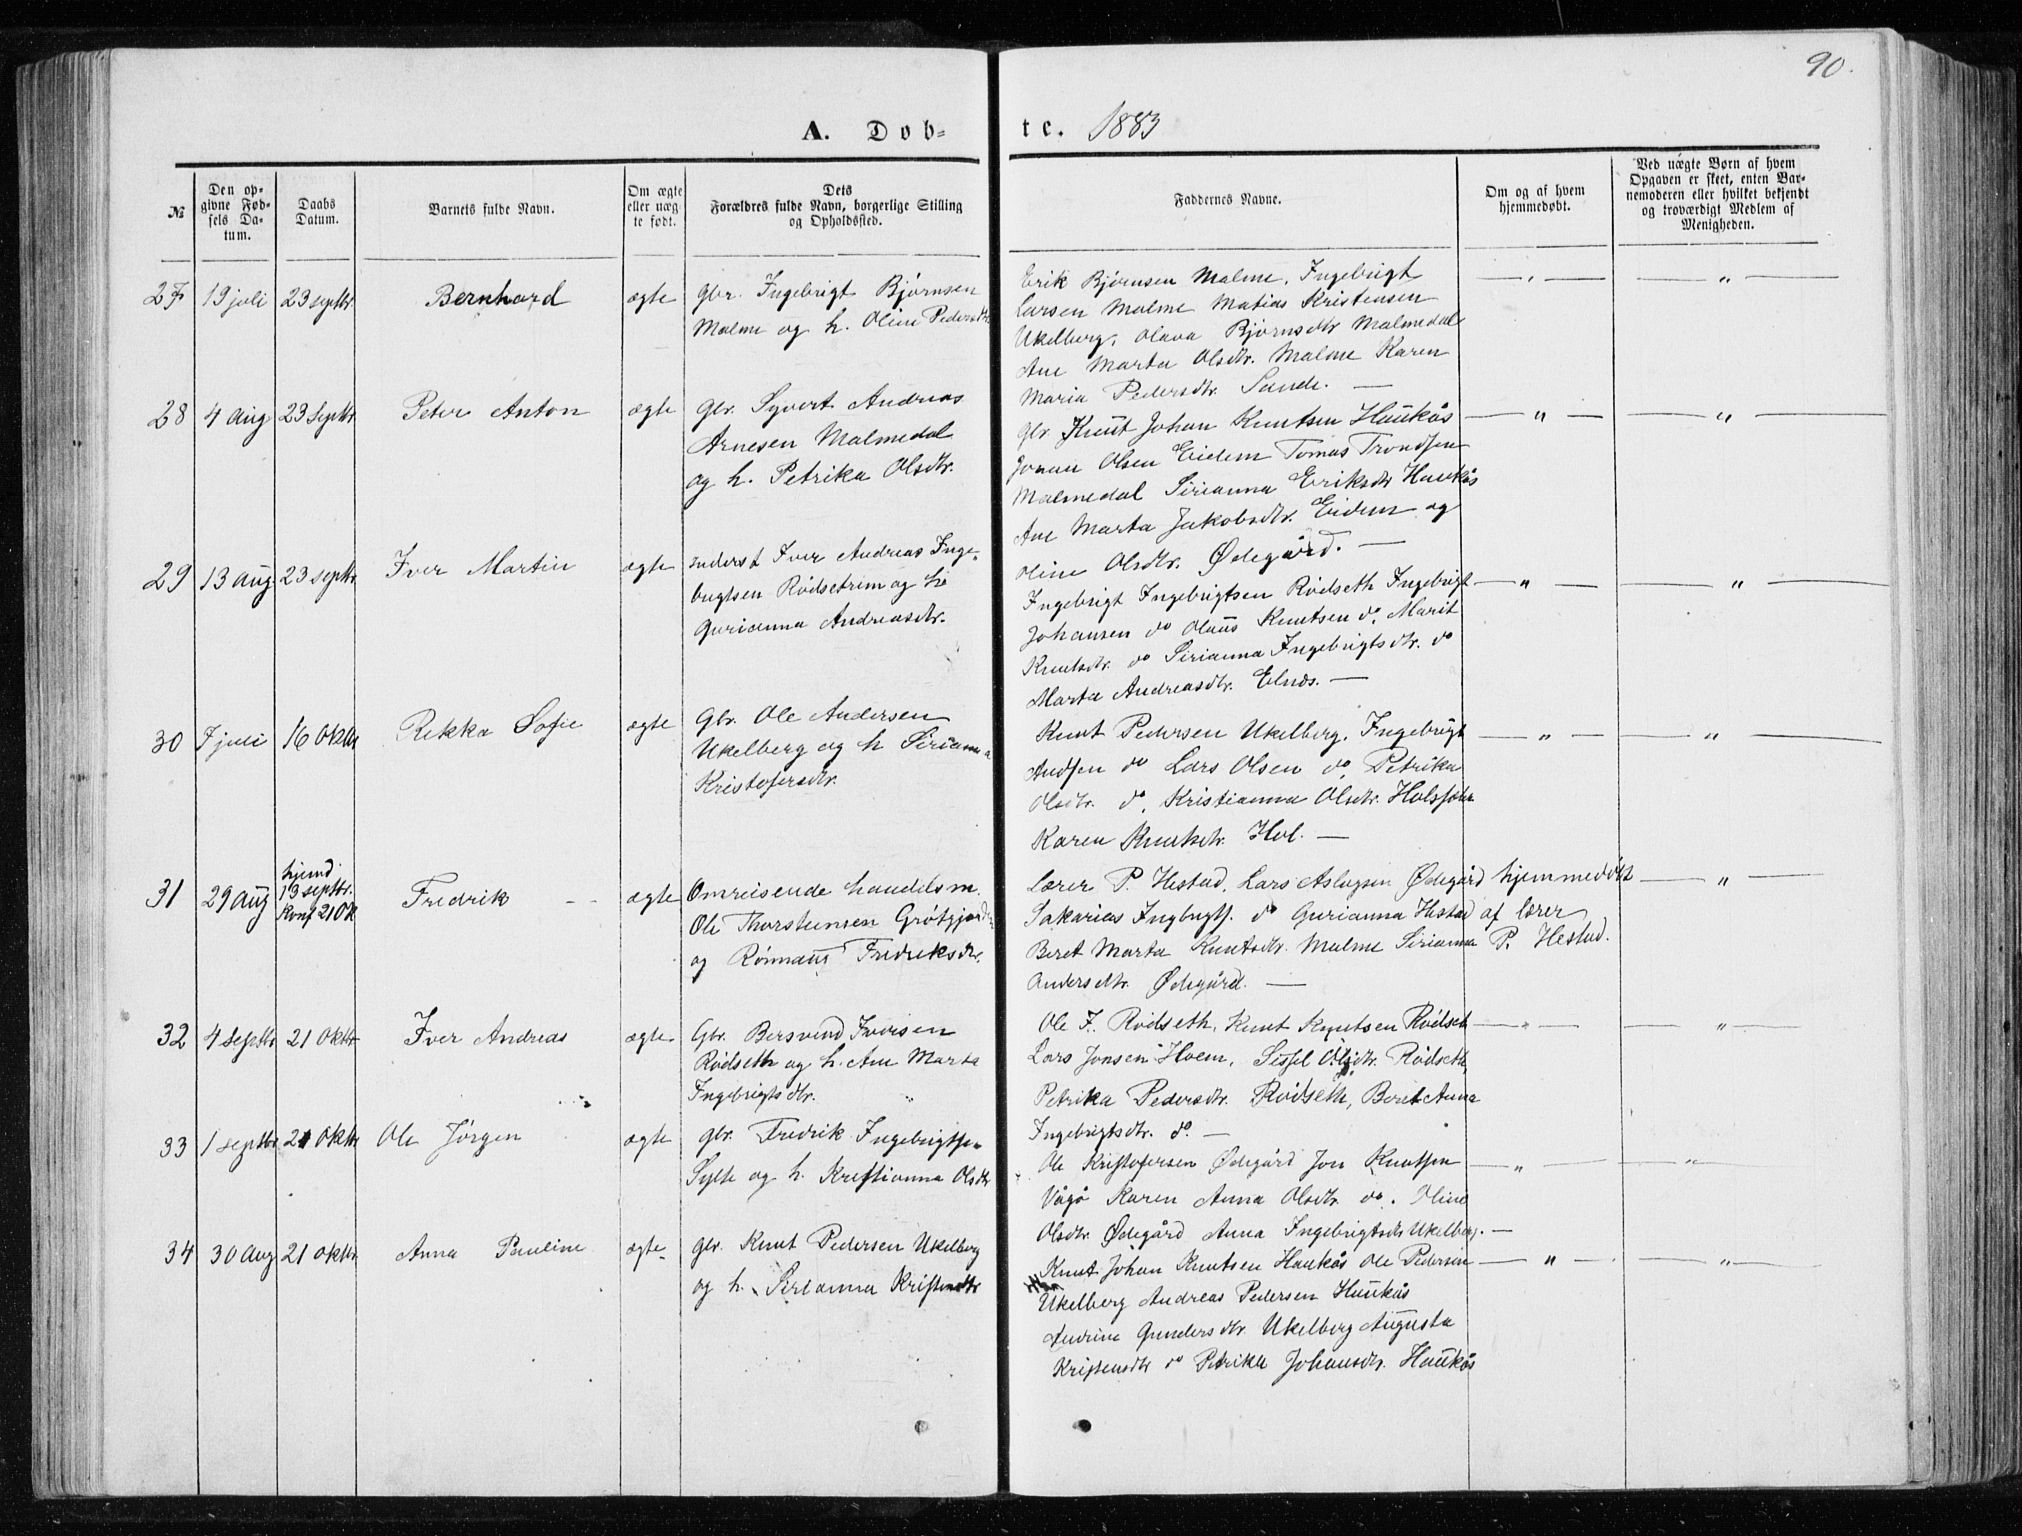 90.
A. Døb=
te. 1883
№
Den op=
givne Fød=
sels Da=
tum.
Daabs
Datum.
Barnets fulde Navn.
Om ægte
eller uæg
te født.
Dets
Forældres fulde Navn, borgerlige Stilling
og Opholdssted.
Faddernes Navne.
Om og af hvem
hjemmedøbt.
Ved uægte Børn af hvem
Opgaven er skeet, enten Bar=
nemoderen eller hvilket bekjendt
og troværdigt Medlem af
Menigheden.
27 19 juli 23 septbr. Bernhard ægte
gbr. Ingebrigt Bjørnsen
Malme og h. Oline Pedersdtr
Erik Bjørnsen Malme, Ingebrigt
Larsen Malme Matias Kristensen
Ukelberg, Olava Bjørnsdtr Malmedal
Ane Marta Olsdtr. Malme Karen
Maria Pedersdtr. Sande. —
— " — — " —
28 4 aug 23 Septbr. Peter Anton ægte
gbr. Syvert Andreas
Arnesen Malmedal
og h. Petrika Olsdtr.
gbr Knut Johan Knutsen Haukås
Olsen Eidem Tomas Trondsen
Malmedal Sirianna Eriksdtr Haukås
Ane Marta Jakobsdtr. Eidem og
Oline Olsdtr. Ødegård. —
— " — — " —
29 13 aug 23 septbr. Iver Martin ægte
Inderst Iver Andreas Inge-
brigtsen Rødsetrim og h.
Gurianna Andreasdtr.
Ingebrigt Ingebrigtsen Rødseth Ingebrigt
Johansen do Olaus Knutsen do. Marit
Knutsdtr. do Sirianna Ingebrigtsdtr. do
Marta Andreasdtr. Elnes. —
— " — — " —
30 7 juli 16 Oktbr Rikka Sofie ægte
Gbr. Ole Andersen
Ukelberg og h Sirianna
Kristofersdtr.
Knut Pedersen Ukelberg, Ingebrigt
Andsen do Lars Olsen do, Petrika
Olsdtr. do, Kristianna Olsdtr.
Karen Knutsdtr. Hol. —
— " — — " —
31 29 aug
hjemd
13 septbr.
konf 21 Ok
Fredrik - - ægte
Omreisende handelsm.
Ole Thorstensen
og Fredriksdtr.
Lærer P. Hestad, Lars Aslagsen Ødegård
Sakarias Ingbrigts. do Gurianna Hestad
Beret Marta Knutsdtr. Malme Sirianna
Andersdtr. Ødegård. —
hjemmedøbt
af lærer
P. Hestad.
— " —
32 4 septbr 21 oktbr Iver Andreas ægte
Gbr. Bersvend Iversen
Rødseth og h. Ane Marta
Ingebrigtsdtr. "
Ole F. Rødseth, Knut Knutsen Rødset
Lars Jonsen Hoem, Sessel Olsdtr. Rødseth
Petrika Pedersdtr. Rødseth, Beret Anna
Ingebrigtsdtr. do. —
— " — — " —
33 1 septbr 21 oktbr Ole Jørgen ægte
gbr. Fredrik Ingebrigtsen
Sylte og h. Kristianna Olsdtr
Ole Kristofersen Ødegård Jon Knutsen
Vågø Karen Anna Olsdtr. do. Oline
Olsdtr. Ødegård Anna Ingebrigtsdtr Ukelberg. —
— " — — " —
34 30 aug 21 oktbr. Anna Pauline ægte
gbr. Knut Pedersen Ukelberg
og h. Sirianna Kristendtr
Knut Johan Knutsen Haukås Ole Pedersen
Ukelberg Andreas Pedersen Haukås
Andrine Gundersdtr. Ukelberg Augusta
Kristensdtr do Petrika Johansdtr. Haukås
— " — — " —